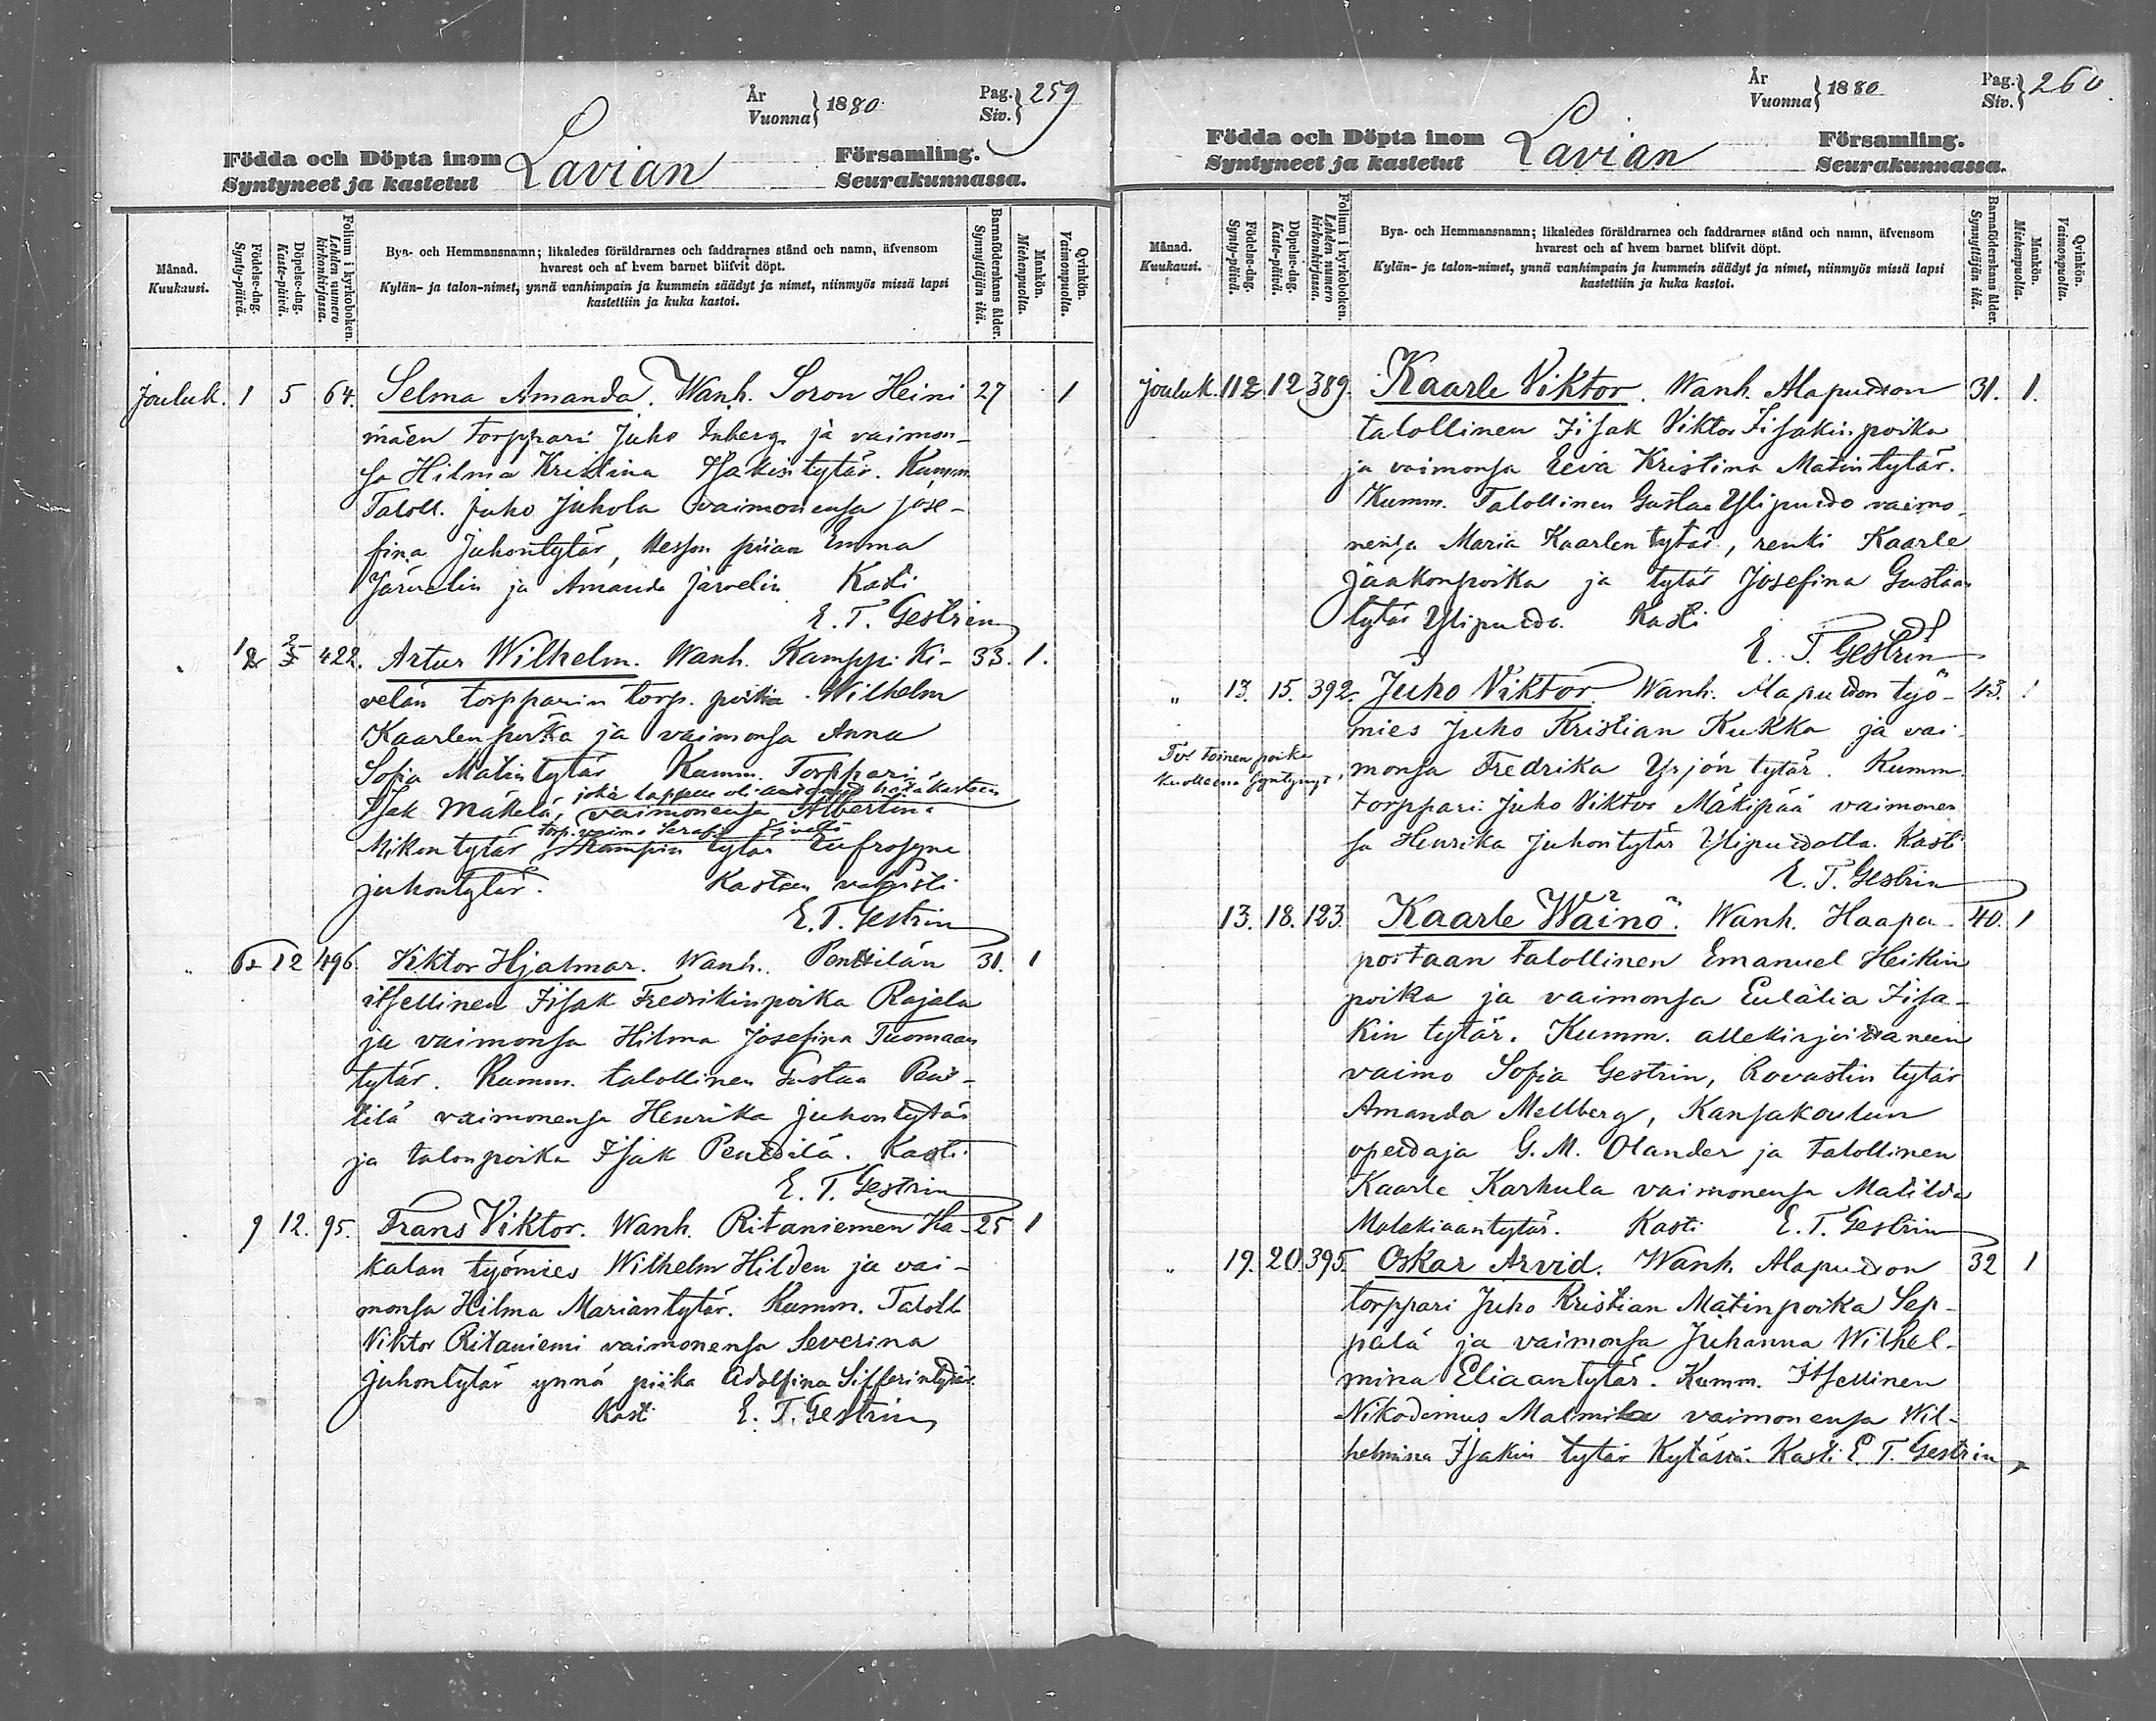 År
Vuonna } 1880.
Pag.
Siv. } 259
Födda och Döpta inom
Syntyneet ja kastetut
Lavian
Församling.
Seurakunnassa.
Månad.
Kuukausi.
Födelse-dag.
Synty-päivä.
Döpelse-dag.
Kaste-päivä.
Folium i kyrkoboken.
Lehden numero kirkonkirjassa.
Bya- och Hemmansnamn; likaledes föräldrarnes och faddrarnes stånd och namn, äfvensom
hvarest och af hvem barnet blifvit döpt.
Kylän- ja talon-nimet, ynnä vanhimpain ja kummein säädyt ja nimet, niinmyös missä lapsi
kastettiin ja kuka kastoi.
Barnaföderskans ålder.
Synnyttäjän ikä.
Mankön.
Miehenpuolta.
Qvinkön.
Vaimonpuolta.
Jouluk. 1 5 64. Selma Amanda. Wanh. Soron Heini 27 1
mäen torppari Juho Inberg ja vaimon-
sa Hilma Kristina Isakintytär. Kumm.
Taloll. Juho Juhola vaimonensa Jose-
fina Juhontytär, piian Emma
Järvelin ja Amanda Järvelin Kasti
E. T. Gestrin
422. Artur Wilhelm. Wanh. Kamppi Ki- 33. 1.
velän torpparin torp. poika Wilhelm
Kaarlenpoika ja vaimonsa Anna
Sofia Matintytär Kumm. Torppari
joka lapselle oli hätäkasteen
Isak Mäkelä, vaimonensa Albertina
torp. vaimo Serafia
Mikontytär tytär Eufrosyne
Juhontytär. Kasteen vahvisti
E. T. Gestrin
12 496. Viktor Hjalmar. Wanh. Penttilän 31. 1
itsellinen Iisak Fredrikinpoika Rajala
ja vaimonsa Hilma Josefina Tuomaan
tytär. Kumm. talollinen Kustaa Pent-
tilä vaimonensa Henrika Juhontytär
ja talonpoika Isak Penttilä. Kasti
E. T. Gestrin
9 12. 95. Frans Viktor. Wanh. Ritaniemen Ha- 25 1
kalan työmies Wilhelm Hilden ja vai-
monsa Hilma Mariantytär. Kumm. Taloll.
Viktor Ritaniemi vaimonensa Severina
Juhontytär ynnä piika Adolfina Sifferintytär.
Kasti E. T. Gestrin
År
Vuonna } 1880
Pag.
Siv. } 260.
Födda och Döpta inom
Syntyneet ja kastetut
Lavian
Församling.
Seurakunnassa.
Månad.
Kuukausi.
Födelse-dag.
Synty-päivä.
Döpelse-dag.
Kaste-päivä.
Folium i kyrkoboken.
Lehden numero kirkonkirjassa.
Bya- och Hemmansnamn; likaledes föräldrarnes och faddrarnes stånd och namn, äfvensom
hvarest och af hvem barnet blifvit döpt.
Kylän- ja talon-nimet, ynnä vanhimpain ja kummein säädyt ja nimet, niinmyös missä lapsi
kastettiin ja kuka kastoi.
Barnaföderskans ålder.
Synnyttäjän ikä.
Mankön.
Miehenpuolta.
Qvinkön.
Vaimonpuolta.
Jouluk. 12 389. Kaarle Viktor. Wanh. Alapuđon 31. 1.
talollinen Iisak Viktor Iisakinpoika
ja vaimonsa Eeva Kristina Matintytär.
Kumm. Talollinen Gustaa Ylipuđo vaimo-
nensa Maria Kaarlentytär, renki Kaarle
Jaakonpoika ja tytär Josefina Gustaan
tytär Ylipuđo. Kasti
E. T. Gestrin
" 13. 15. 392. Juho Viktor. Wanh. Alapuđon työ- 43. 1
mies Juho Kristian Kukka ja vai-
Tv. toinen poika
kuolleena syntynyt
monsa Fredrika Yrjön tytär. Kumm.
torppari Juho Viktor Mäkipää vaimonen
sa Henrika Juhontytär Ylipuđolla. Kasti
E. T. Gestrin
13. 18. 123. Kaarle Wäinö. Wanh. Haapa- 40. 1
portaan talollinen Emanuel Heikin
poika ja vaimonsa Eulalia Iisa-
kin tytär. Kumm. allekirjoittaneen
vaimo Sofia Gestrin, Rovastin tytär
Amanda Mellberg, Kansakoulun
opettaja G. M. Olander ja talollinen
Kaarle Karhula vaimonensa Matilda
Malakiaantytär. Kasti E. T. Gestrin
" 19. 20. 395. Oskar Arvid. Wanh. Alapuđon 32 1
torppari Juho Kristian Matinpoika Sep-
pälä ja vaimonsa Juhanna Wilhel-
mina Eliaantytär. Kumm. Itsellinen
Nikodemus Malmila vaimonensa Wil-
helmina Isakin tytär Kasti E. T. Gestrin